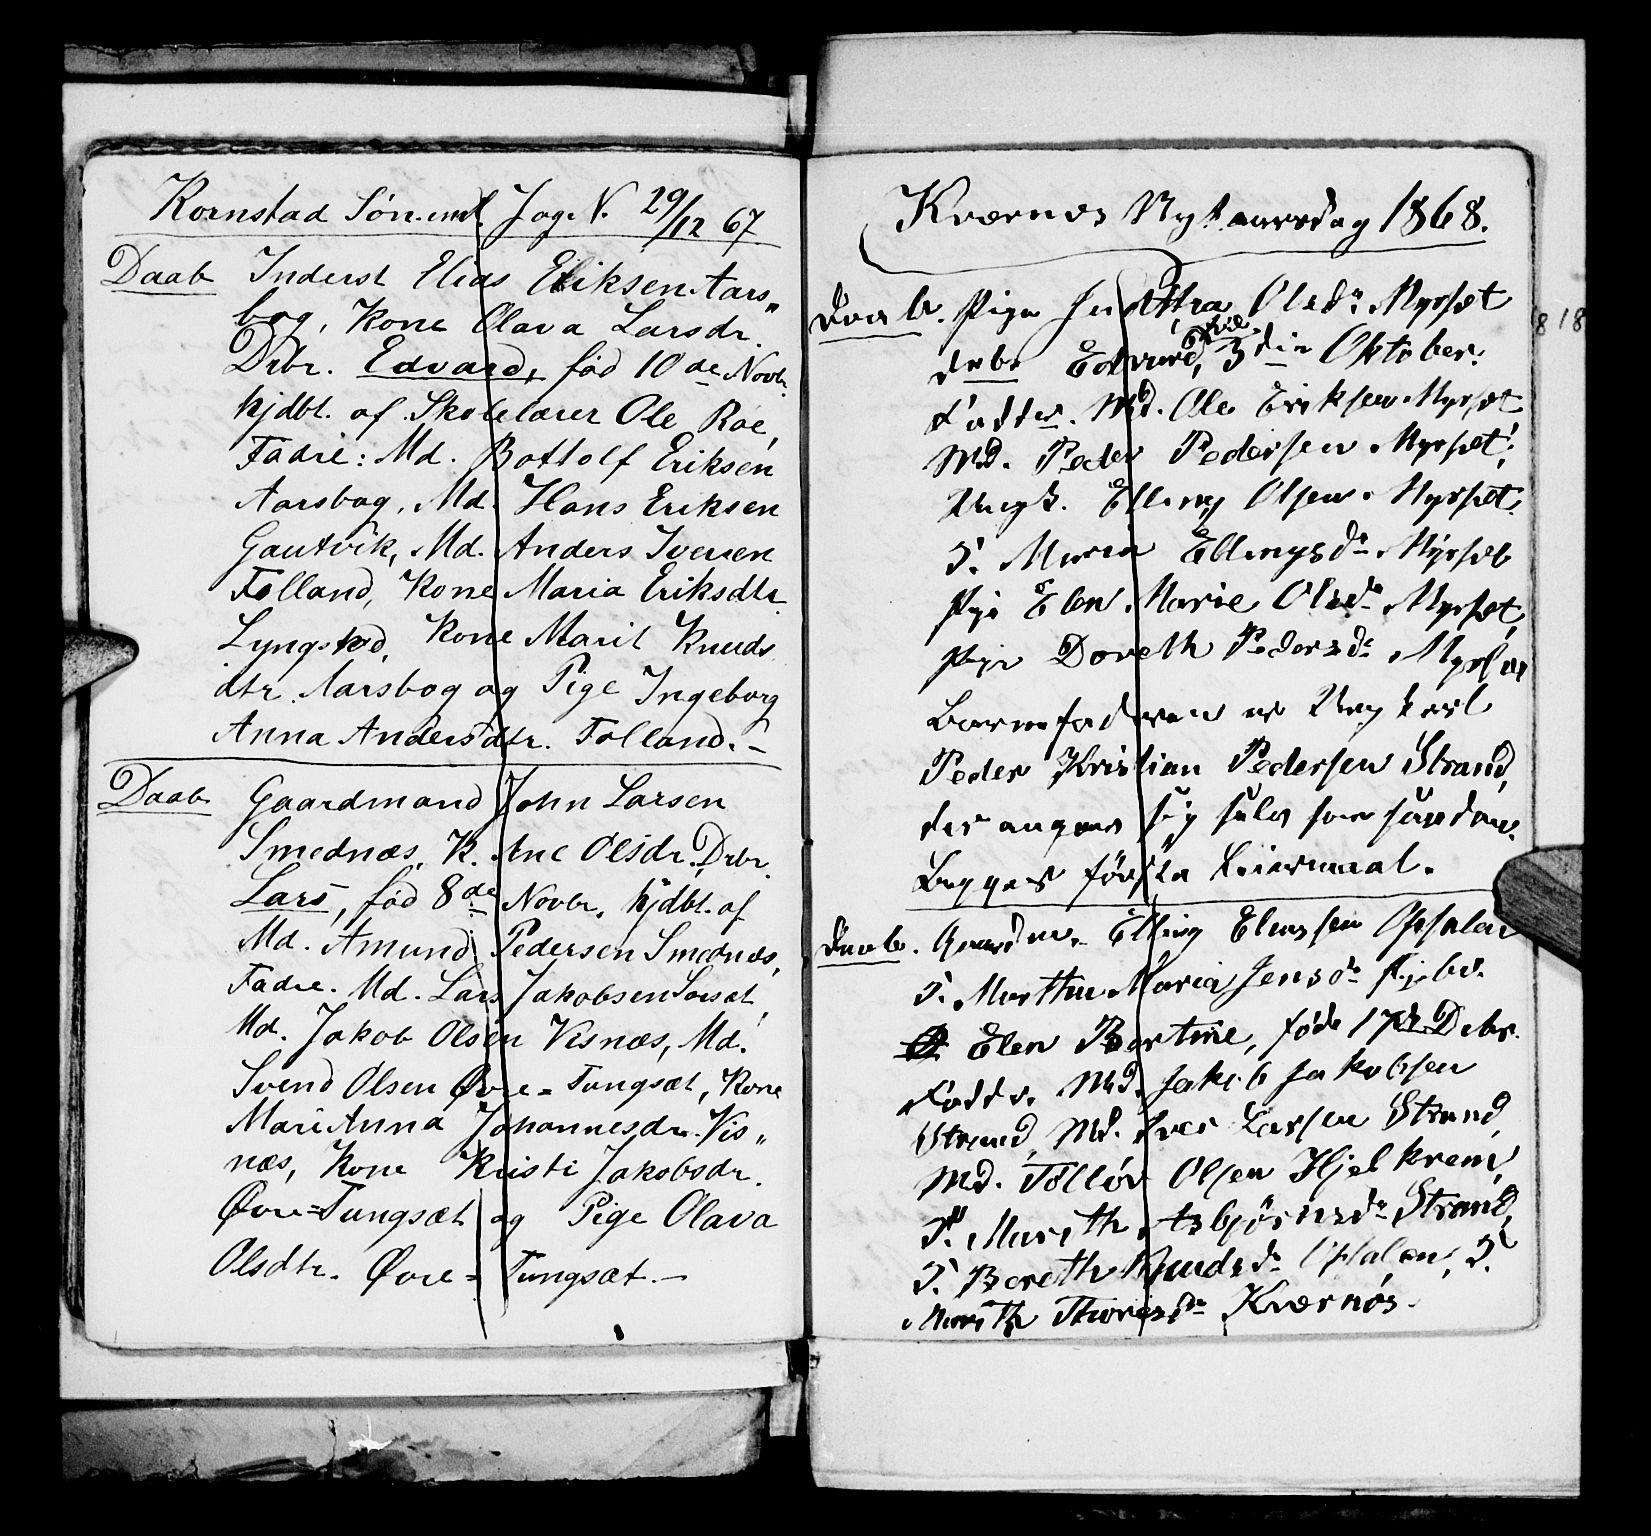 Kornstad Søn. eml Jag. N. 29/12 67
Daab Inderst Elias Eliksen Aars„
bog, Kone Olava Larsdr.
Drbr. Edvard, fød 10de Novbr.
hjdbt. af Skolelærer Ole Roe,
Fadre: Md. Bottolf Eriksen
Aarsbog, Md. Hans Eriksen
Gautvik, Md. Anders Iversen
Folland, Kone Maria Eriksdtr
Lyngstad, Kone Marit Knuds
dtr. Aarsbog og Pige Ingeborg
Anna Andersdtr. Folland. –
Daab Gaardmand John Larsen
Smednæs, K. Ane Olsdr. Drbr.
Lars, fød 8de Novbr. hjdbt. af
Md. Amund Pedersen Smednæs,
Fadre. Md. Lars Jakobsen
Md. Jakob Olsen Visnæs, Md.
Svend Olsen Øvre=Tungsæt, Kone
Mari Anna Johannesdr. Vis„
næs, Kone Kristi Jakobsdr.
Øvre=Tungsæt og Pige Olava
Olsdtr. Øvre=Tungsæt. –
Kværnes Nytaarsdag 1868.
Daab. Pige Olsdr Myrset
drbr Edvard, 3die Oktober.
Faddr. Md. Ole Eriksen Myrset
Md. Peder Pedersen Myrset,
Ungk. Elling Olsen Myrset
K. Maria Ellingsdr Myrset
Pige Elen Marie Olsdr Myrset
Pige Doreth Pedersdr Myrset
Barnefaderen er Ungkarl
Peder Kristian Pedersen Strand,
der angav sig selv som saadan.
Begges første Leiermaal.
Daab. Gaardm. Elling Eliassen Opsalen
K. Martha Maria Jensdr Pigebr.
Elen Bertine, føde 17de Debr.
Faddr. Md. Jakob Jakobsen
Strand, Md. Iver Larsen Strand,
Md. Tolløv Olsen Hjelkrem,
K. Marith Asbjørnsdr Strand,
K. Bereth Knudsdr Opsalen, K.
Marith Thoresdr Kværnøs.
8 18